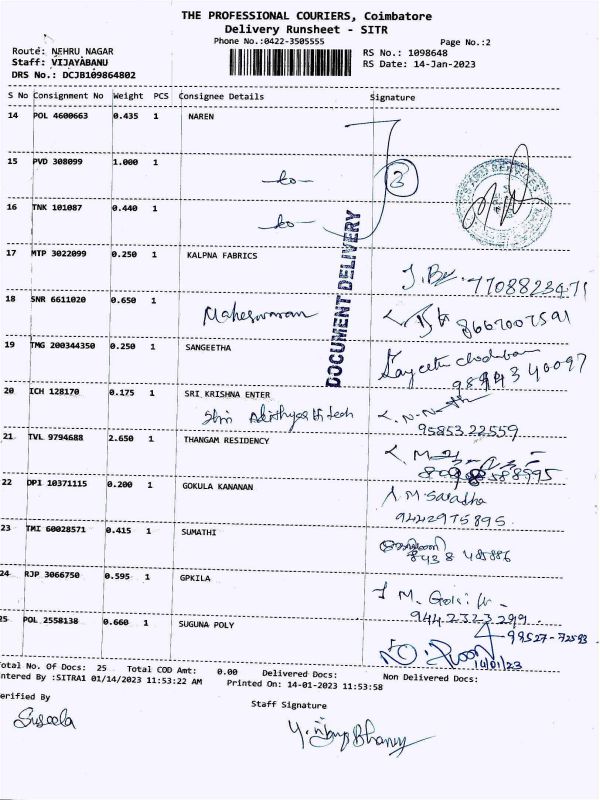 THE PROFESSIONAL COURIERS, Coimbatore
Delivery Runsheet - SITR
Phone No.:0422-3505555
Page No.:2
Route: NEHRU_NAGAR
RS No.: 1098648
Staff: VIJAYABANU
RS Date: 14-Jan-2023
DRS No.: DCJB109864802
S No Consignment No Weight PCS Consignee Details Signature
14 POL 4600663 0.435 1 NAREN
15 PVD 308099 1.000 1
-do- 3
16 TNK 101087 0.440 1
-do-
DOCUMENT DELIVERY
17 MTP 3022099 0.250 1 KALPNA FABRICS
7708823471
18 SNR 6611020 0.650 1
Maheswaran 8667007591
19 TMG 200344350 0.250 1 SANGEETHA
9894340097
20 ICH 128170 0.175 1 SRI KRISHNA ENTER
9585322559
21 TVL 9794688 2.650 1 THANGAM RESIDENCY
22 DPI 10371115 0.200 1 GOKULA KANANAN
A.M Saradha
9442975895
23 TMI 60028571 0.415 1 SUMATHI
24 RJP 3066750 0.595 1 GPKILA
9442323299
25 POL 2558138 0.660 1 SUGUNA POLY
99527-72593
14/01/23
Total No. Of Docs: 25 Total COD Amt: 0.00 Delivered Docs: Non Delivered Docs:
ntered By :SITRA1 01/14/2023 11:53:22 AM Printed On: 14-01-2023 11:53:58
erified By
Staff Signature
Suseela